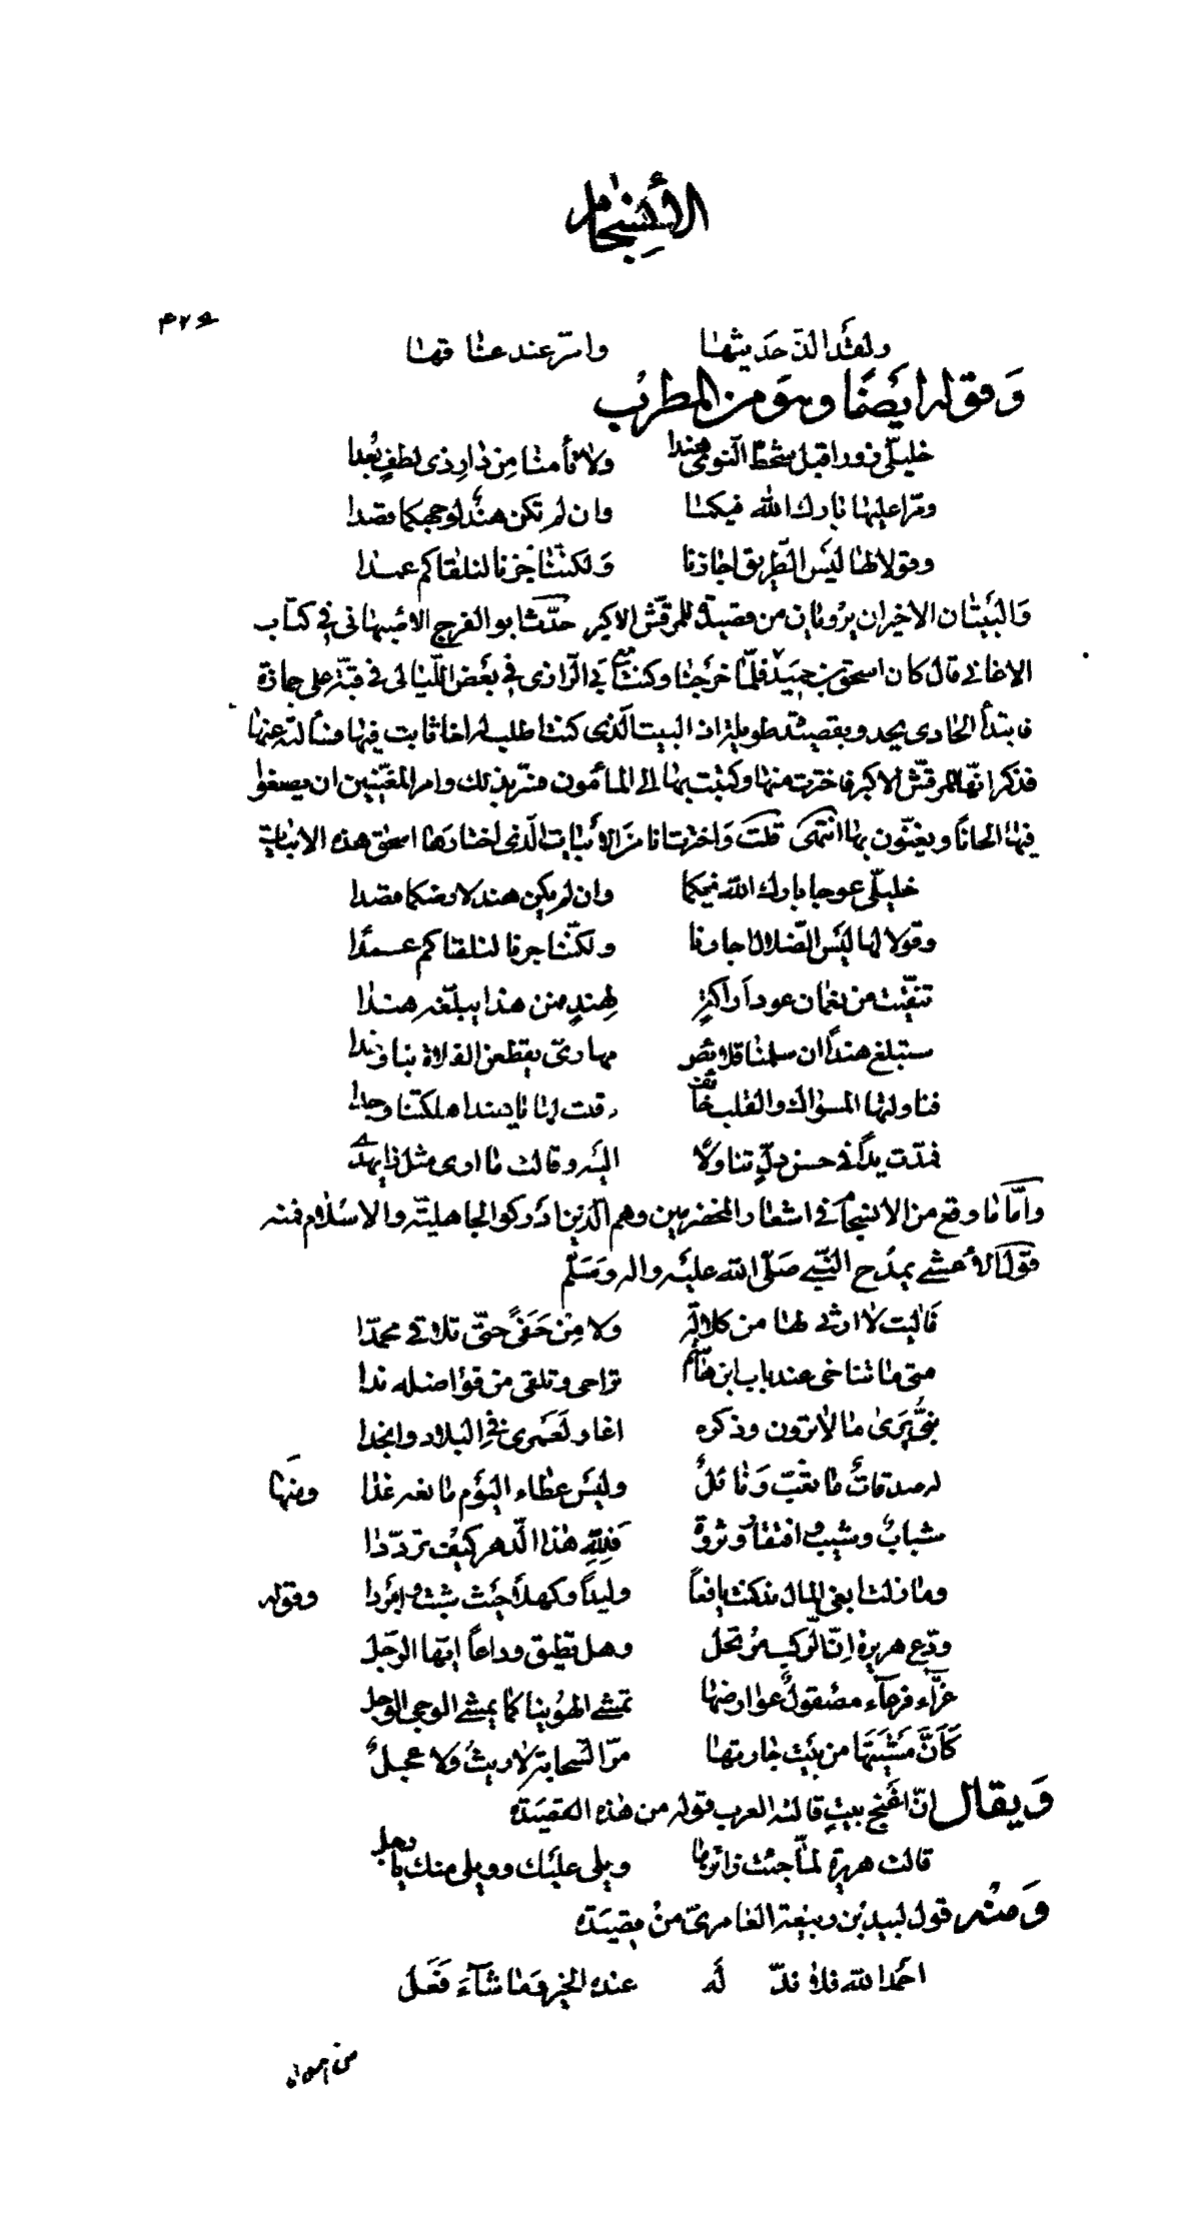 الأنسجام
ولقد ألذ حديثها واسر عند عناقها
وقوله أيضا وهو من المطرب
خليلي زورا قبل شحط النوى هندا ولا تأمنا من دار ذي لطف بعدا
ومرا عليها بارك الله فيكما وان لم تكن هند لوجهكما قصدا
وقولا لها ليس الطريق اجازنا ولكننا جزنا لنلقاكم عمدا
والبيتان الاخيران يرويان من قصيدة للمرقش الاكبر حدث ابو الفرج الاصبهاني في كتاب
الاغاني قال كان اسحق فلما خرجنا وكنت في بعض الليالي في قبة على جمازة
فابتدأ الحادي يحدو بقصيدة طويلة اذا البيت الذي كنت اطلب ثابت فيها فسألته عنها
فذكر انها للمرقش الاكبر فاخترت منها وكتبت بها الى المأمون فسر بذلك وامر المغنين ان يصنعوا
فيها الحانا ويغنون بها انتهى قلت واخترت انا من الأبيات الذي اختارها اسحق هذه الابيات
خليلي عوجا بارك الله فيكما وان لم يكن هند لارضكما قصدا
وقولا لها ليس الضلال اجازنا ولكننا جزنا لنلقاكم عمدا
تنقيت من نعمان عود اراكة لهند فمن هذا يبلغه هندا
ستبلغ هندا ان سلمنا قلائص مهاري يقطعن الفلاة بنا وخدا
فناولتها المسواك والقلب خائف وقلت لها يا هند اهلكتنا وجدا
فمدت يدا في حسن دل تناولا اليه وقالت ما ارى مثل ذا يهدى
وأما ما وقع من الانسجام في اشعار المخضرمين وهم الذين ادركوا الجاهلية والاسلام فمنه
قول الأعشى يمدح النبي صلى الله عليه واله وسلم
فآليت لا ارثي لها من كلالة ولا من حفى حتى تلاقي محمدا
متى ما تناخي عند باب ابن هاشم تراحي وتلقي من فواضله ندا
نبي يرى ما لا ترون وذكره اغار لعمري في البلاد وانجدا
له صدقات ما تغب ونائل وليس عطاء اليوم مانعه غدا ومنها
شباب وشيب وافتقار وثروة فلله هذا الدهر كيف ترددا
وما زلت ابغي المال مذ كنت يافعا وليدا وكهلا حيث شبت وامردا وقوله
ودع هريرة ان الركب مرتحل وهل تطيق وداعا ايها الرجل
غراء فرعاء مصقول عوارضها تمشي الهوينا كما يمشي الوجي الوحل
كأن مشيتها من بيت جارتها مر السحابة لا ريث ولا عجل
ويقال ان اغنج بيت قالته العرب قوله من هذه القصيدة
قالت هريرة لما جئت زائرها ويلي عليك وويلي منك يا رجل
ومنه قول لبيد بن ربيعة العامري من قصيدة
احمد الله فلا ند له عنده الخير وما شآء فعل